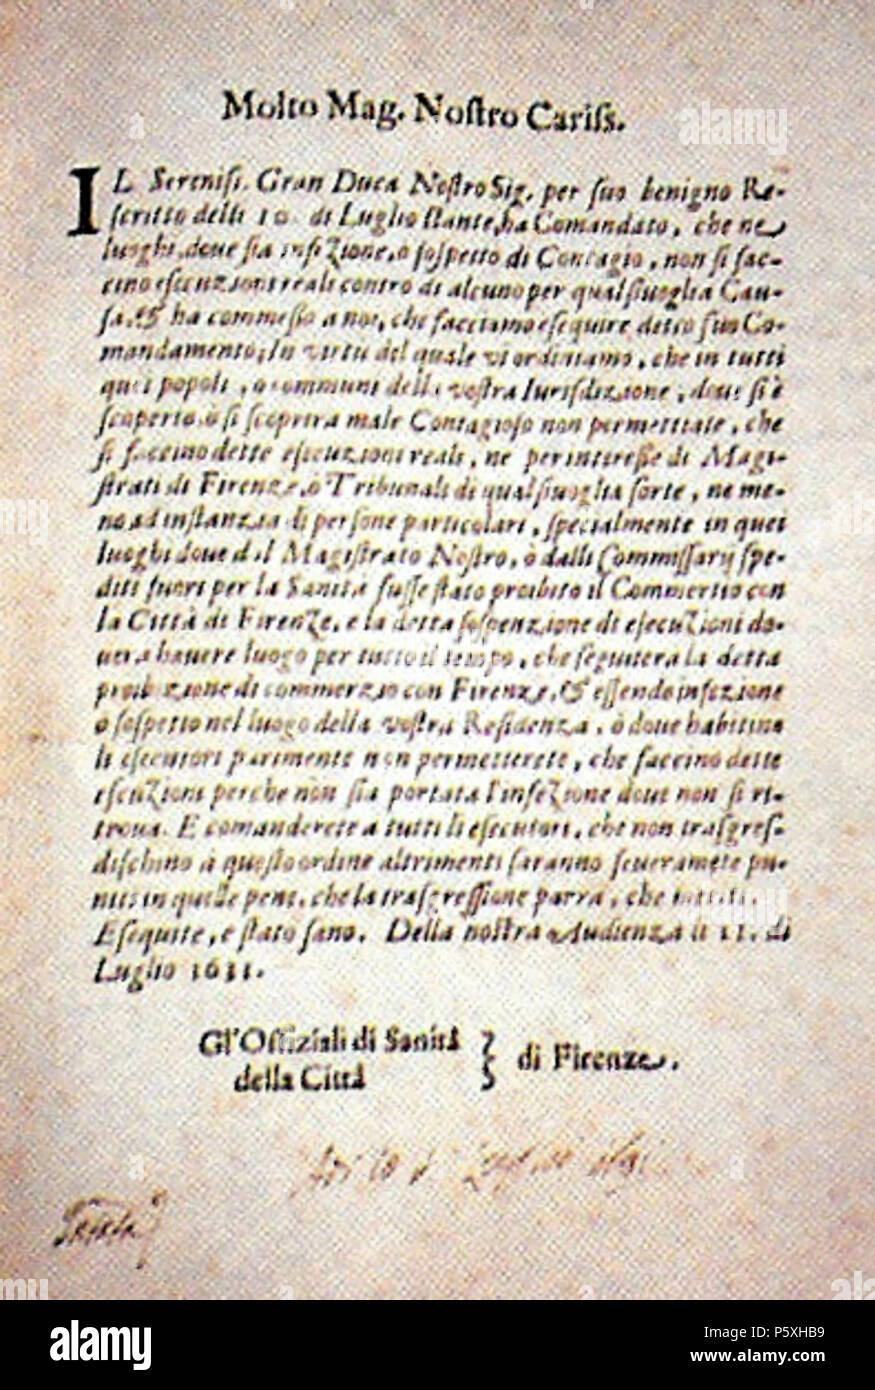 Molto Mag. Noſtro Cariſs.
IL Sereniſs. Gran Duca Noſtro Sig. per ſuo benigno Re-
ſcritto delli 10. di Luglio ſtante, ha Comandato, che ne
luoghi, doue ſia infezione, o ſoſpetto di Contagio, non ſi fac-
cino eſecuzioni reali contro di alcuno per qual ſiuoglia Cau-
ſa. & ha commeſſo a noi, che facciamo eſequire detto ſuo Co-
mandamento, In virtu del quale vi ordiniamo, che in tutti
quei popoli, o communi della voſtra Iuriſdizione, doue ſi è
ſcoperto, o ſi ſcoprira male Contagioſo non permettiate, che
ſi faccino dette eſecuzioni reali, ne per intereſſe di Magi-
ſtrati di Firenze, ò Tribunali di qual ſiuoglia ſorte, ne me-
no ad inſtanzia di perſone particolari, ſpecialmente in quei
luoghi doue dal Magiſtrato Noſtro, ò dalli Commiſſarij ſpe-
diti fuori per la Sanità fuſſe ſtato proibito il Commertio con
la Città di Firenze, e la detta ſoſpenzione di eſecuzioni do-
uerà hauere luogo per tutto il tempo, che ſeguiterà la detta
proibizione di commerzio con Firenze, & eſſendo infezione
o ſoſpetto nel luogo della voſtra Reſidenza, ò doue habitino
li eſecutori parimente non permetterete, che faccino dette
eſecuzioni perche non ſia portata l'infezione doue non ſi ri-
troua. E comanderete a tutti li eſecutori, che non traſgreſ-
diſchino à queſto ordine altrimenti ſaranno ſeueramēte pu-
niti in quelle pene, che la traſgreſſione parrà, che
Eſequite, e ſtato ſano. Della noſtra Audienza li 11. di
Luglio 1631.
Gl'Offiziali di Sanità
della Città
di Firenze.
alamy
Image ID: P5XHB9
www.alamy.com